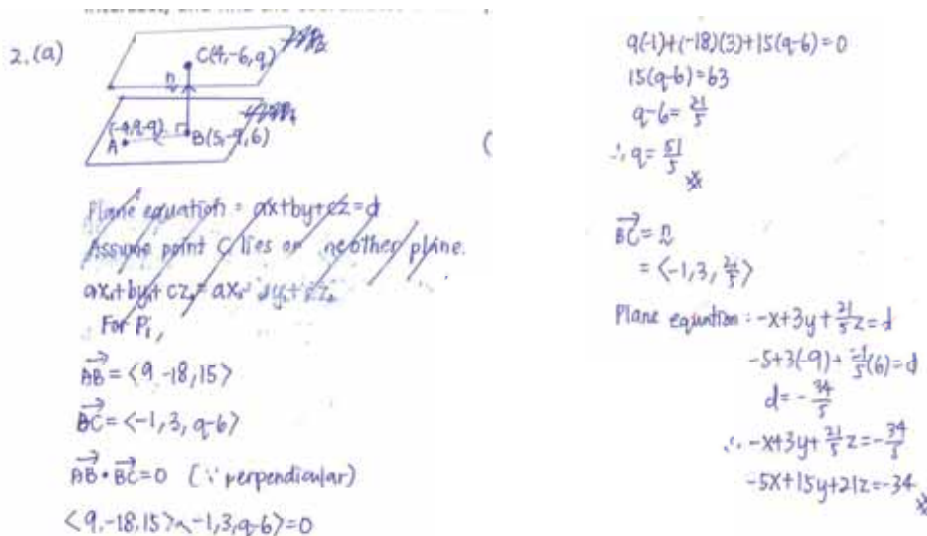 2.(a)
C(4,-6,q)
n
(-4,9,-9)
A
B(5,-9,6)
Plane equation = ax+by+cz=d
Assume point C lies on another plane.
For P₁,
AB = <9,-18,15>
BC = <-1,3,q-6>
AB • BC = 0 (∵ perpendicular)
<9,-18,15> <-1,3,q-6> = 0
9(-1)+(-18)(3)+15(q-6)=0
15(q-6)=63
q-6=21/5
∴ q=51/5 ※
BC = n
= <-1,3,21/5>
Plane equation : -x+3y+21/5 z=d
-5+3(-9)+21/5(6)=d
d=-34/5
∴ -x+3y+21/5 z=-34/5
-5x+15y+21z=-34 ※